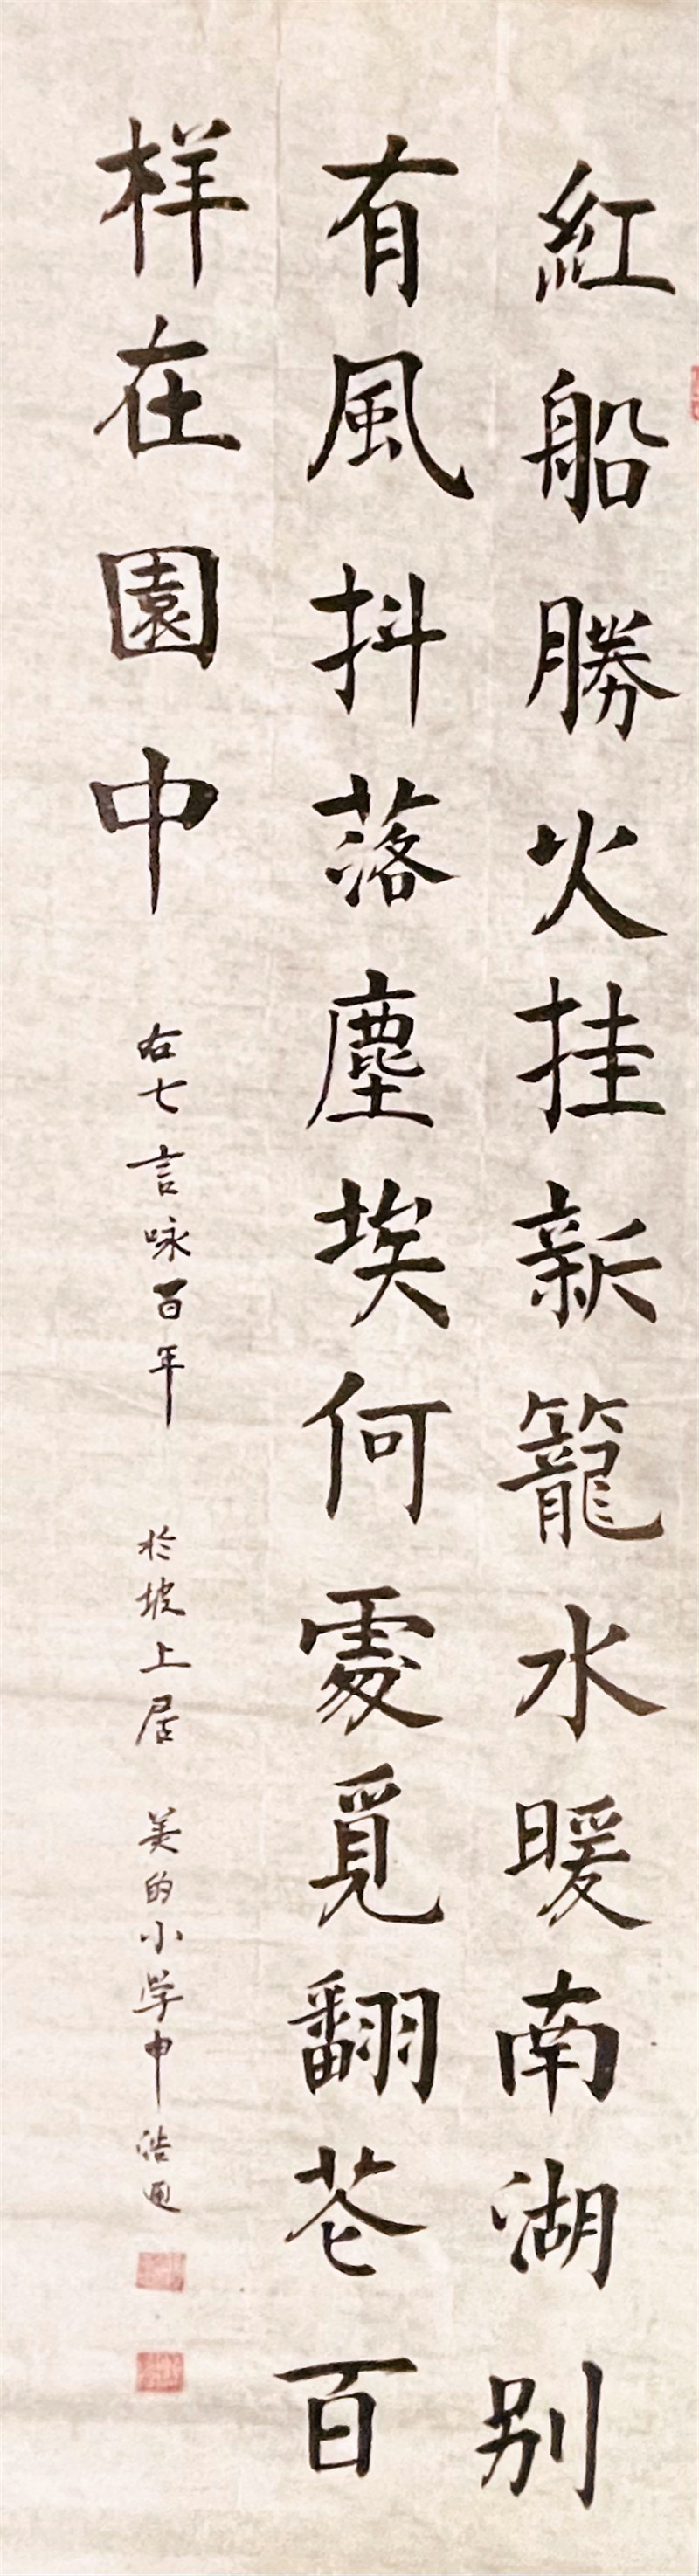 紅船勝火挂新籠水暖南湖别
有風抖落塵埃何處覓翻苍百
样在園中
右七言咏百年
於坡上居
美的小学申浩